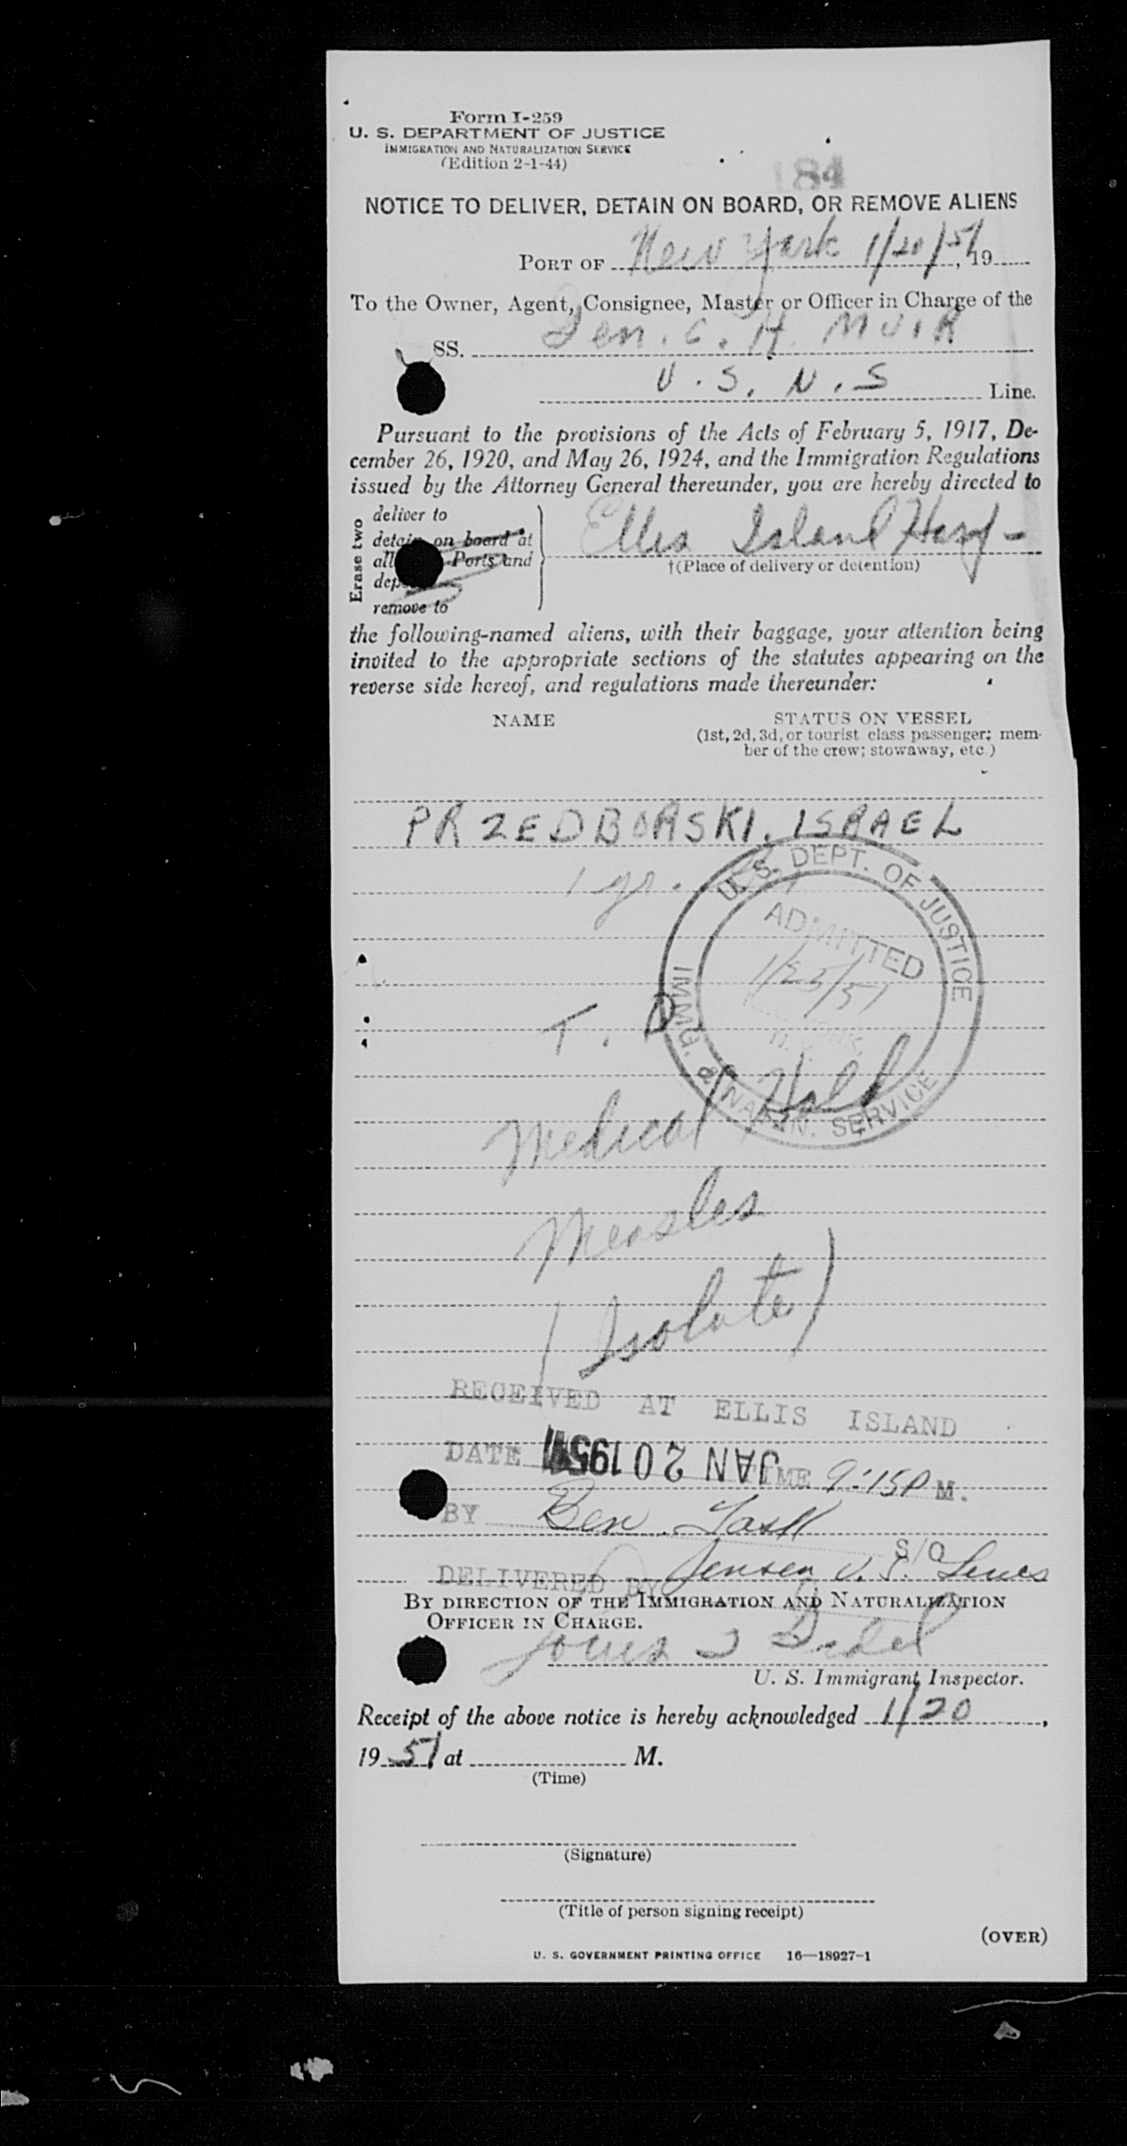 Form I-259
U. S. DEPARTMENT OF JUSTICE
IMMIGRATION AND NATURALIZATION SERVICE
(Edition 2-1-44)
184
NOTICE TO DELIVER, DETAIN ON BOARD, OR REMOVE ALIENS
PORT OF New York 1/20/51, 19
To the Owner, Agent, Consignee, Master or Officer in Charge of the
SS. Gen. C. H. MUIR
U.S.N.S Line.
Pursuant to the provisions of the Acts of February 5, 1917, De-
cember 26, 1920, and May 26, 1924, and the Immigration Regulations
issued by the Attorney General thereunder, you are hereby directed to
Erase two
deliver to
detain on board at
all Ports and
remove to
Ellis Island Hosp-
†(Place of delivery or detention)
the following-named aliens, with their baggage, your attention being
invited to the appropriate sections of the statutes appearing on the
reverse side hereof, and regulations made thereunder:
NAME
STATUS ON VESSEL
(1st, 2d, 3d, or tourist class passenger; mem-
ber of the crew; stowaway, etc.)
PRZEDBORSKI, ISRAEL
1 yr.
U. S. DEPT. OF JUSTICE
ADMITTED
1/25/51
IMMG. & NATZN. SERVICE
T. D
Medical Hold
Measles
(Isolate)
RECEIVED AT ELLIS ISLAND
DATE JAN 20 1951 TIME 9:15P M.
BY Ben
S/O
DELIVERED BY Jensen U.S. Lines
BY DIRECTION OF THE IMMIGRATION AND NATURALIZATION
OFFICER IN CHARGE.
U. S. Immigrant Inspector.
Receipt of the above notice is hereby acknowledged 1/20,
1951 at M.
(Time)
(Signature)
(Title of person signing receipt)
(OVER)
U. S. GOVERNMENT PRINTING OFFICE 16—18927-1